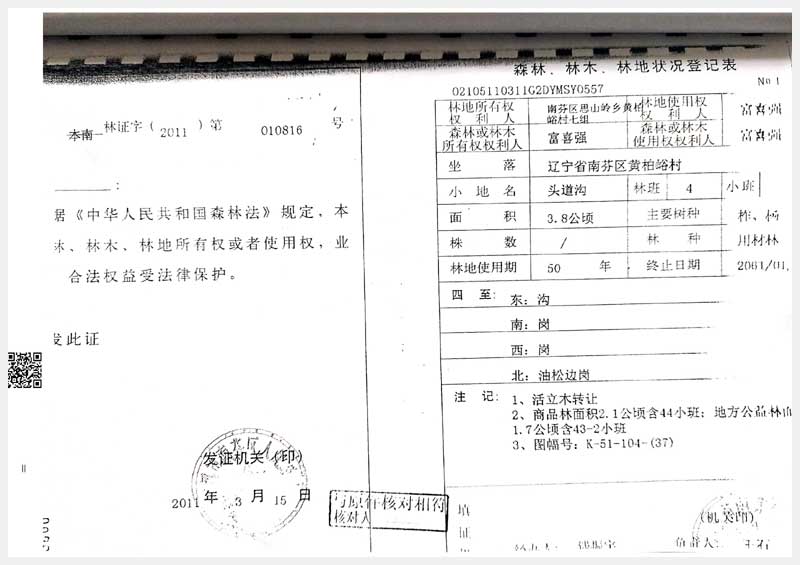 本南 林证字( 2011 )第 010816 号
：
据《中华人民共和国森林法》规定，本
林、林木、林地所有权或者使用权，业
合法权益受法律保护。
发此证
发证机关(印)
2011 年 3 月 15 日
与原件核对相符
核对人
森林、林木、林地状况登记表
02105110311G2DYMSY0557
No 1
林地所有权权利人 南芬区思山岭乡黄柏峪村七组 林地使用权权利人 富喜强
森林或林木所有权权利人 富喜强 森林或林木使用权权利人 富喜强
坐落 辽宁省南芬区黄柏峪村
小地名 头道沟 林班 4 小班
面积 3.8公顷 主要树种 柞、杨
株数 / 林种 用材林
林地使用期 50 年 终止日期 2061/01,
四至: 东: 沟
南: 岗
西: 岗
北: 油松边岗
注记: 1、活立木转让
2、商品林面积2.1公顷含44小班; 地方公益林面
1.7公顷含43-2小班
3、图幅号: K-51-104-(37)
填
证
(机关印)